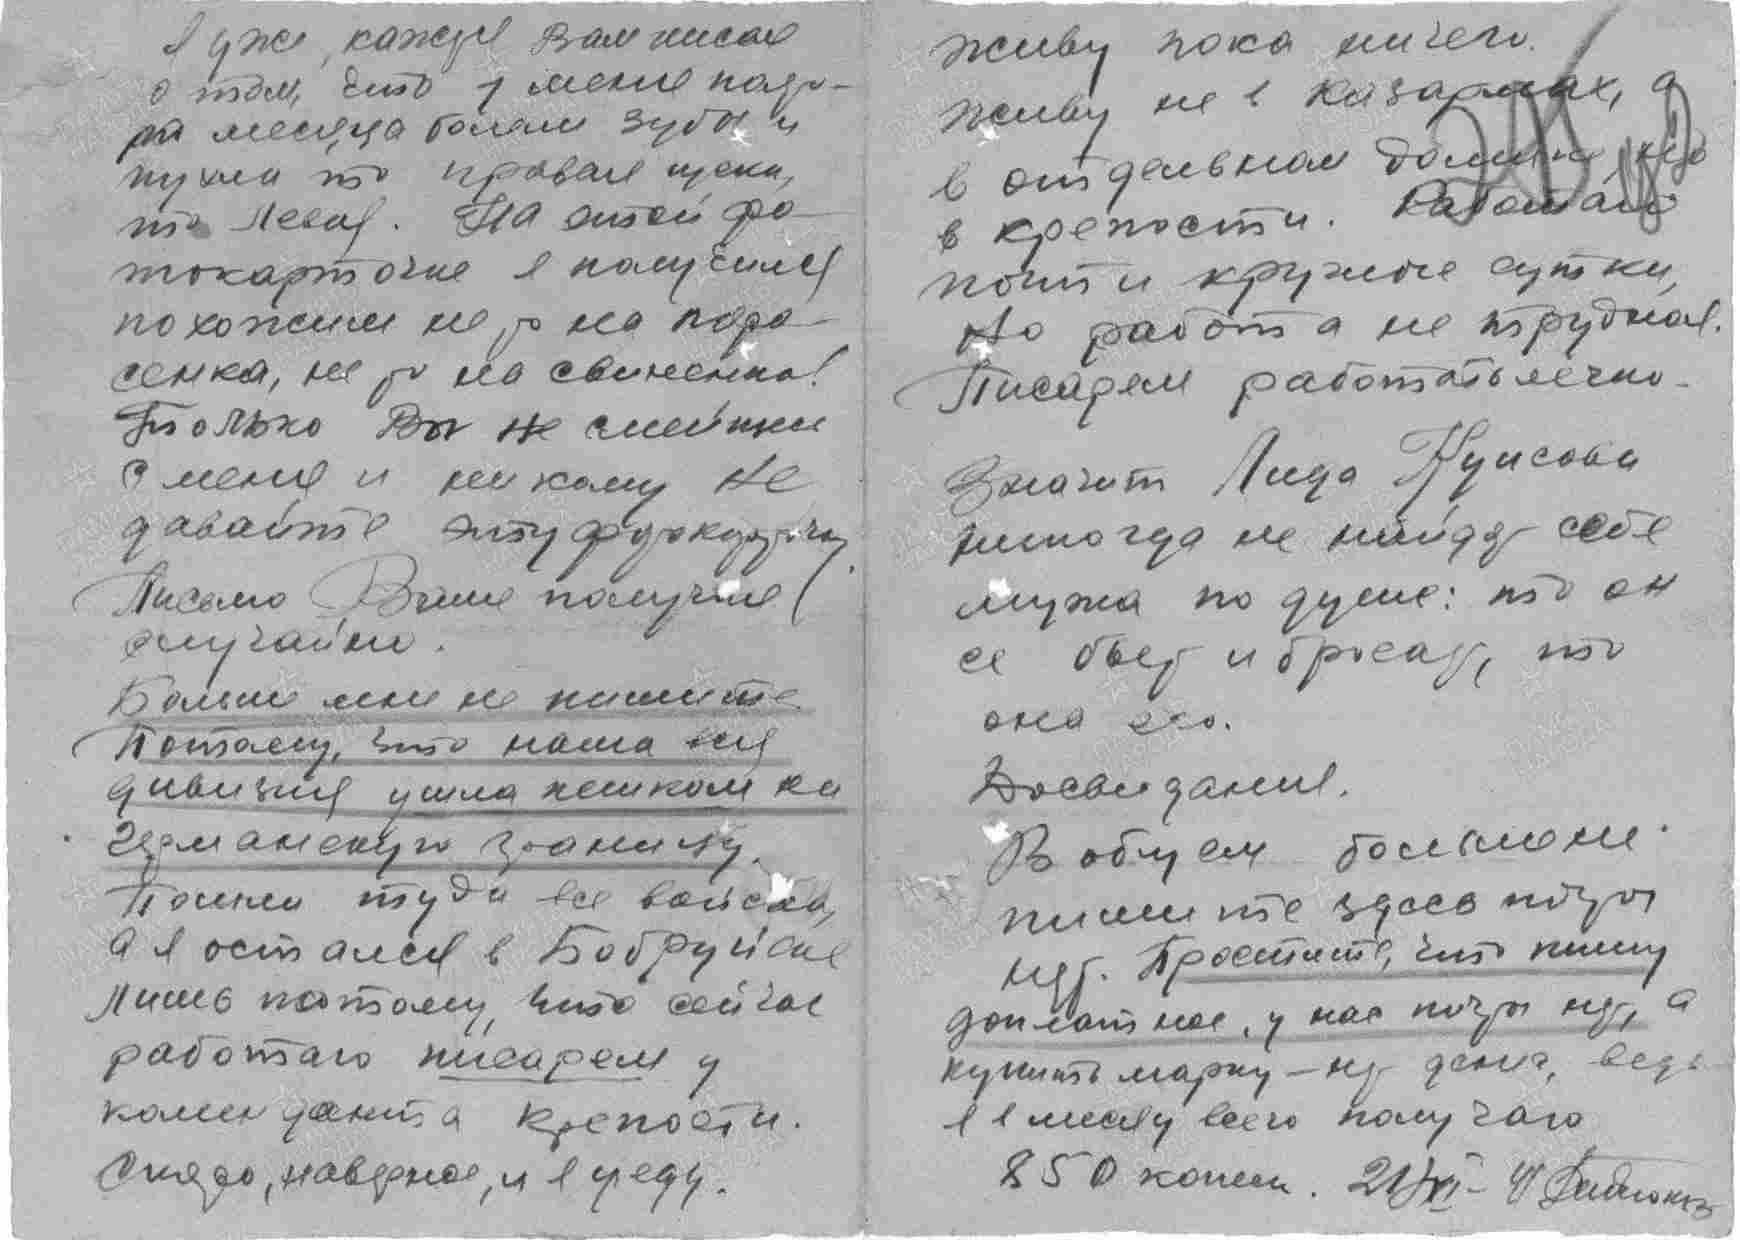 Я уже, кажется Вам писал
о том, что у меня полто-
ра месяца болели зубы и
пухла то правая щека,
то левая. На этой фо-
токарточке я получился
похожим не то на поро-
сенка, не то на свиненка!
Только Вы не смейтесь
с меня и никому не
давайте эту фотокарточку.
Письмо Ваше получил
случайно.
Больше мне не пишите
Потому, что наша вся
дивизия ушла пешком на
Германскую границу.
Пошли туда все войска,
а я остался в Бобруйске
лишь потому, что сейчас
работаю писарем у
коменданта крепости.
Скоро, наверное, и я уеду.
Живу пока ничего.
Живу не в казармах, а
в отдельном домике
в крепости. Работаю
почти круглые сутки,
но работа не трудная.
Писарем работать легко.
Значит Лида
никогда не найдет себе
мужа по душе: то он
ее бьет и бросает, то
она его.
Досвидания.
В общем больше не
пишите здесь почты
нет. Простите, что пишу
доплатное, у нас почты нет, а
купить марку – нет денег, ведь
я в месяц всего получаю
850 копеек. 21/VI–41